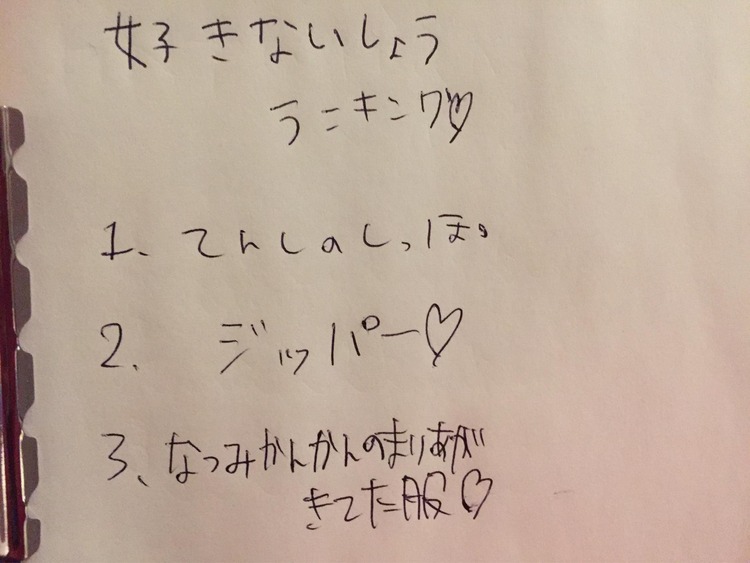 好きないしょう
ランキング♡
1、てんしのしっぽ。
2、ジッパー♡
3、なつみかんかんのまりあが
きてた服♡